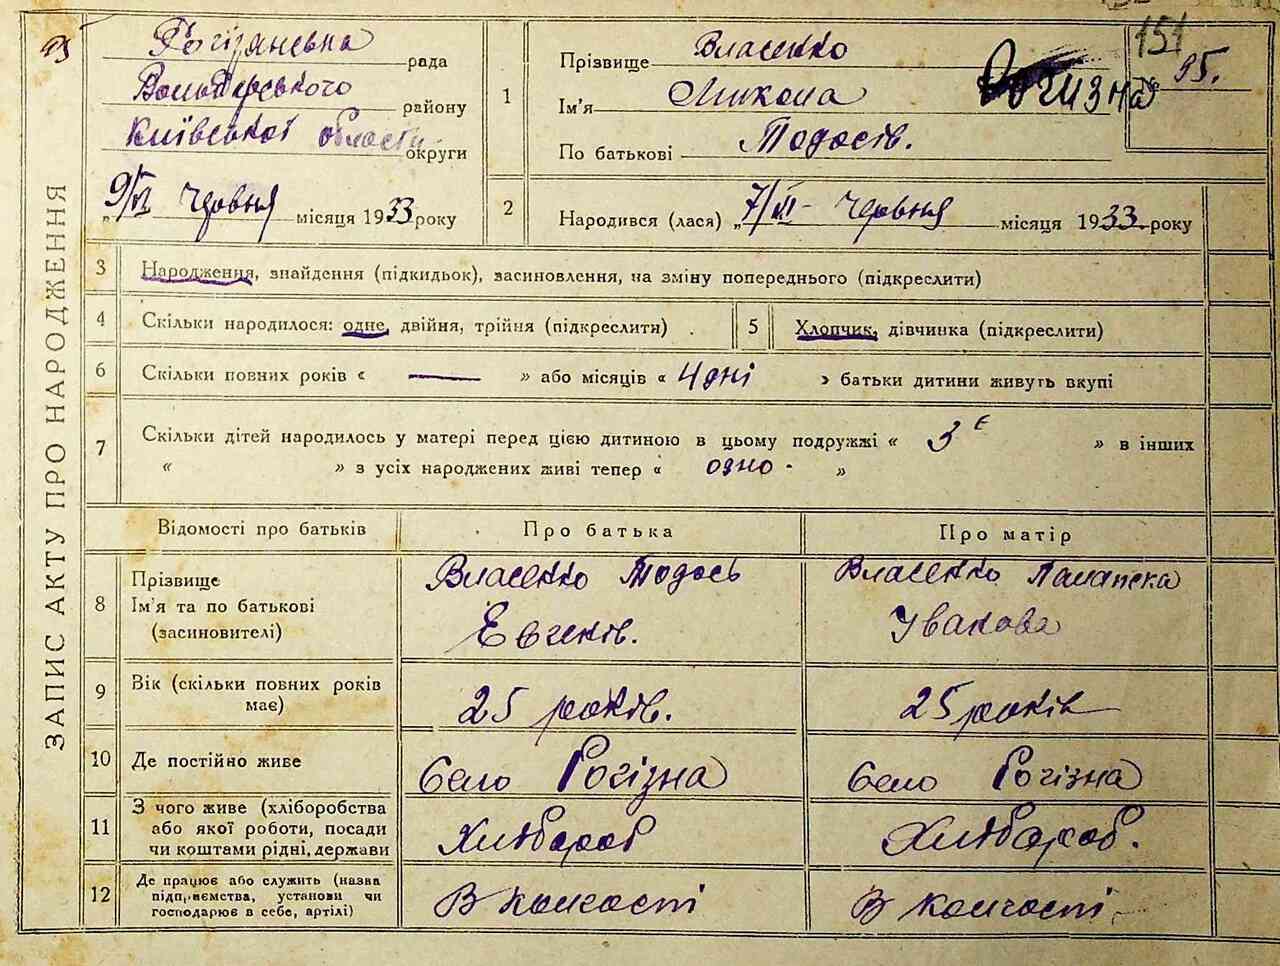 ЗАПИС АКТУ ПРО НАРОДЖЕННЯ
Рогізянська рада
району
Київської области округи
9/VI червня місяця 1933 року
151
№ 95.
Рогизна
1 Прізвище Власенко
Ім'я Микола
По батькові Тодосів.
2 Народився (лася) „7/VI - червня місяця 1933. року
3 Народження, знайдення (підкидьок), засиновлення, на зміну попереднього (підкреслити)
4 Скільки народилося: одне, двійня, трійня (підкреслити)
5 Хлопчик, дівчинка (підкреслити)
6 Скільки повних років « — » або місяців « 4 дні » батьки дитини живуть вкупі
7 Скільки дітей народилось у матері перед цією дитиною в цьому подружжі « 3є » в інших
« » з усіх народжених живі тепер « одно - »
Відомості про батьків Про батька Про матір
8 Прізвище
Ім'я та по батькові
(засиновителі)
Власенко Тодось
Власенко
9 Вік (скільки повних років
має)
25 років.
25 років
10 Де постійно живе
Село Рогізна
Село Рогізна
11 З чого живе (хліборобства
або якої роботи, посади
чи коштами рідні, держави
Хлібороб
Хлібороб.
12 Де працює або служить (назва
підприємства, установи чи
господарює в себе, артілі)
В колгості
В колгості